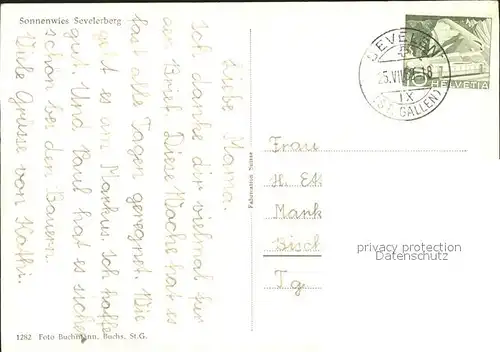 Sonnenwies Sevelerberg
Liebe Mama.
Ich danke dir vielmal für
den Brief. Diese Woche hat es
fast alle Tagen geregnet. Wie
geht es am Markus. Ich hoffe
gut. Und Paul hat es sicher
schön bei den Bauern.
Viele Grüsse von Kathi.
1282 Foto Buchmann, Buchs, St.G.
SEVELEN
25.VII
18
IX
(ST. GALLEN)
HELVETIA
Frau
H. Et
Mank
Bisch
Tg
privacy protection
Datenschutz